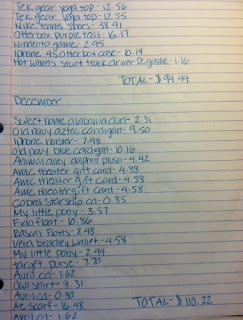 Tek gear yoga top - 12.56
Tek gear yoga top - 12.55
Nike tennis shoes - 28.91
Otterbox purple teal - 16.17
Nintendo game - 2.95
Iphone 4s otterbox case - 10.14
Hot wheels stunt track driver PC game - 1.16
TOTAL - $94.44
December
Sweet home alabama cd - 2.31
Old navy aztec cardigan - 9.50
Iphone holster - 2.98
Old navy blue cardigan - 10.16
Animal alley dolphin plush - 4.42
Amc theater gift card - 4.88
Amc theater gift card - 4.58
Amc theater gift card - 4.58
Cobra Starship cd - 0.85
My little pony - 3.57
Fido float - 10.86
Rascal Flatts - 2.48
Vera bradley wallet - 4.58
My little pony - 2.94
Target purse - 7.70
Avril cd - 1.62
Owl shirt - 3.31
Avril cd - 0.80
Ae scarf - 16.48
Avril cd - 1.62
TOTAL - $110.22